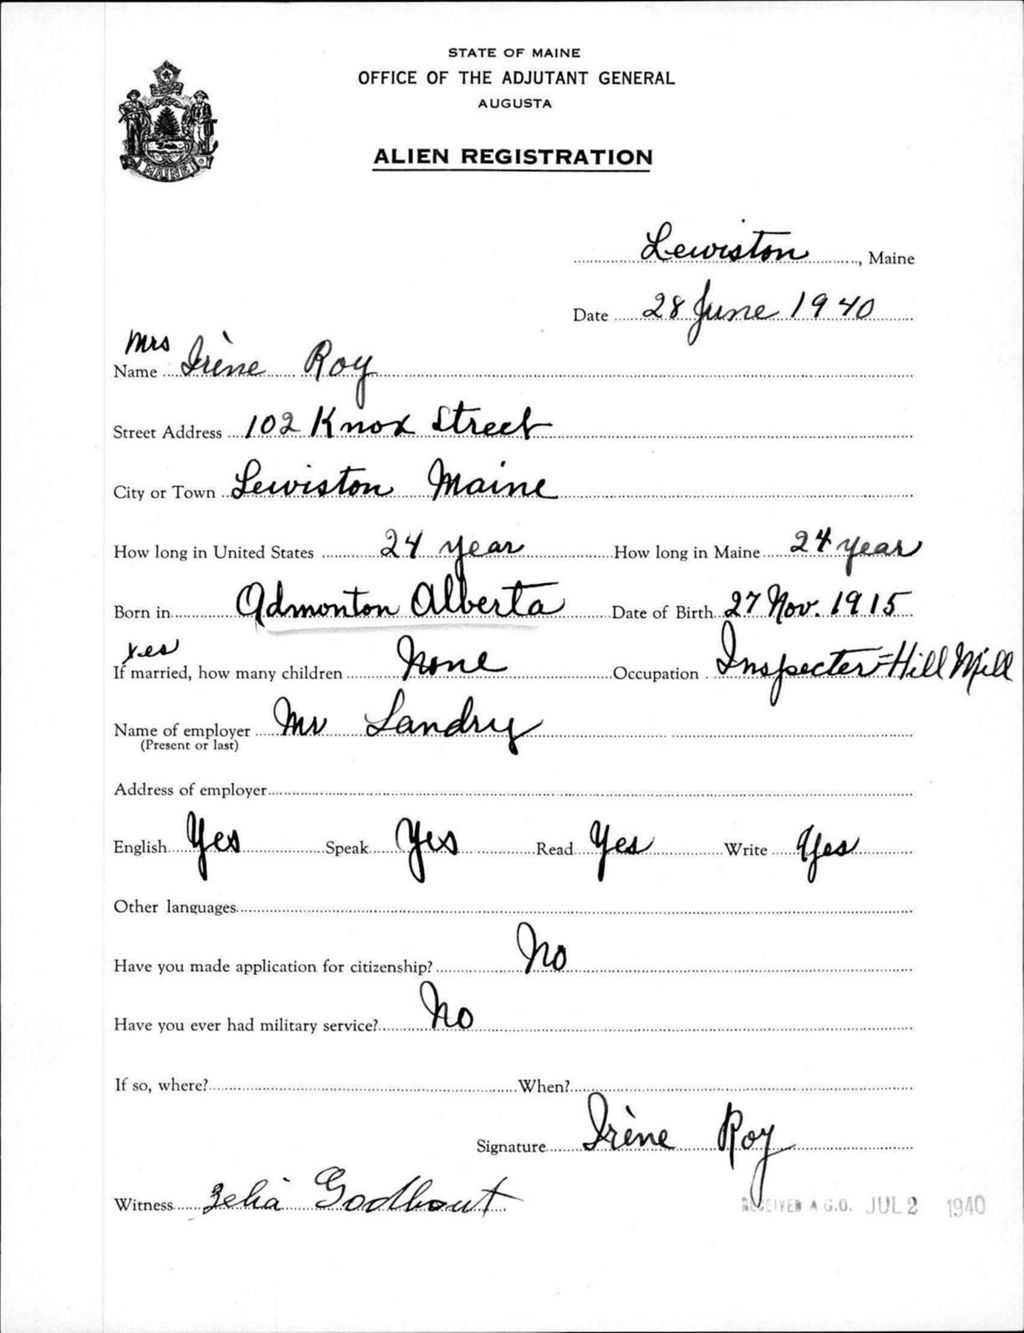 STATE OF MAINE
OFFICE OF THE ADJUTANT GENERAL
AUGUSTA
ALIEN REGISTRATION
MAINE
Lewiston, Maine
Date 28 June 1940
Mrs
Name Irène Roy
Street Address 102 Knox Street
City or Town Lewiston Maine
How long in United States 24 year How long in Maine 24 year
Born in Admonton Alberta Date of Birth 27 Nov. 1915
Yes
If married, how many children None Occupation Inspecter-Hill Mill
Name of employer Mr Landry
(Present or last)
Address of employer
English Yes Speak Yes Read Yes Write Yes
Other languages
Have you made application for citizenship? No
Have you ever had military service? No
If so, where? When?
Signature Irène Roy
Witness Zelia Godbout
RECEIVED A.G.O. JUL 2 1940